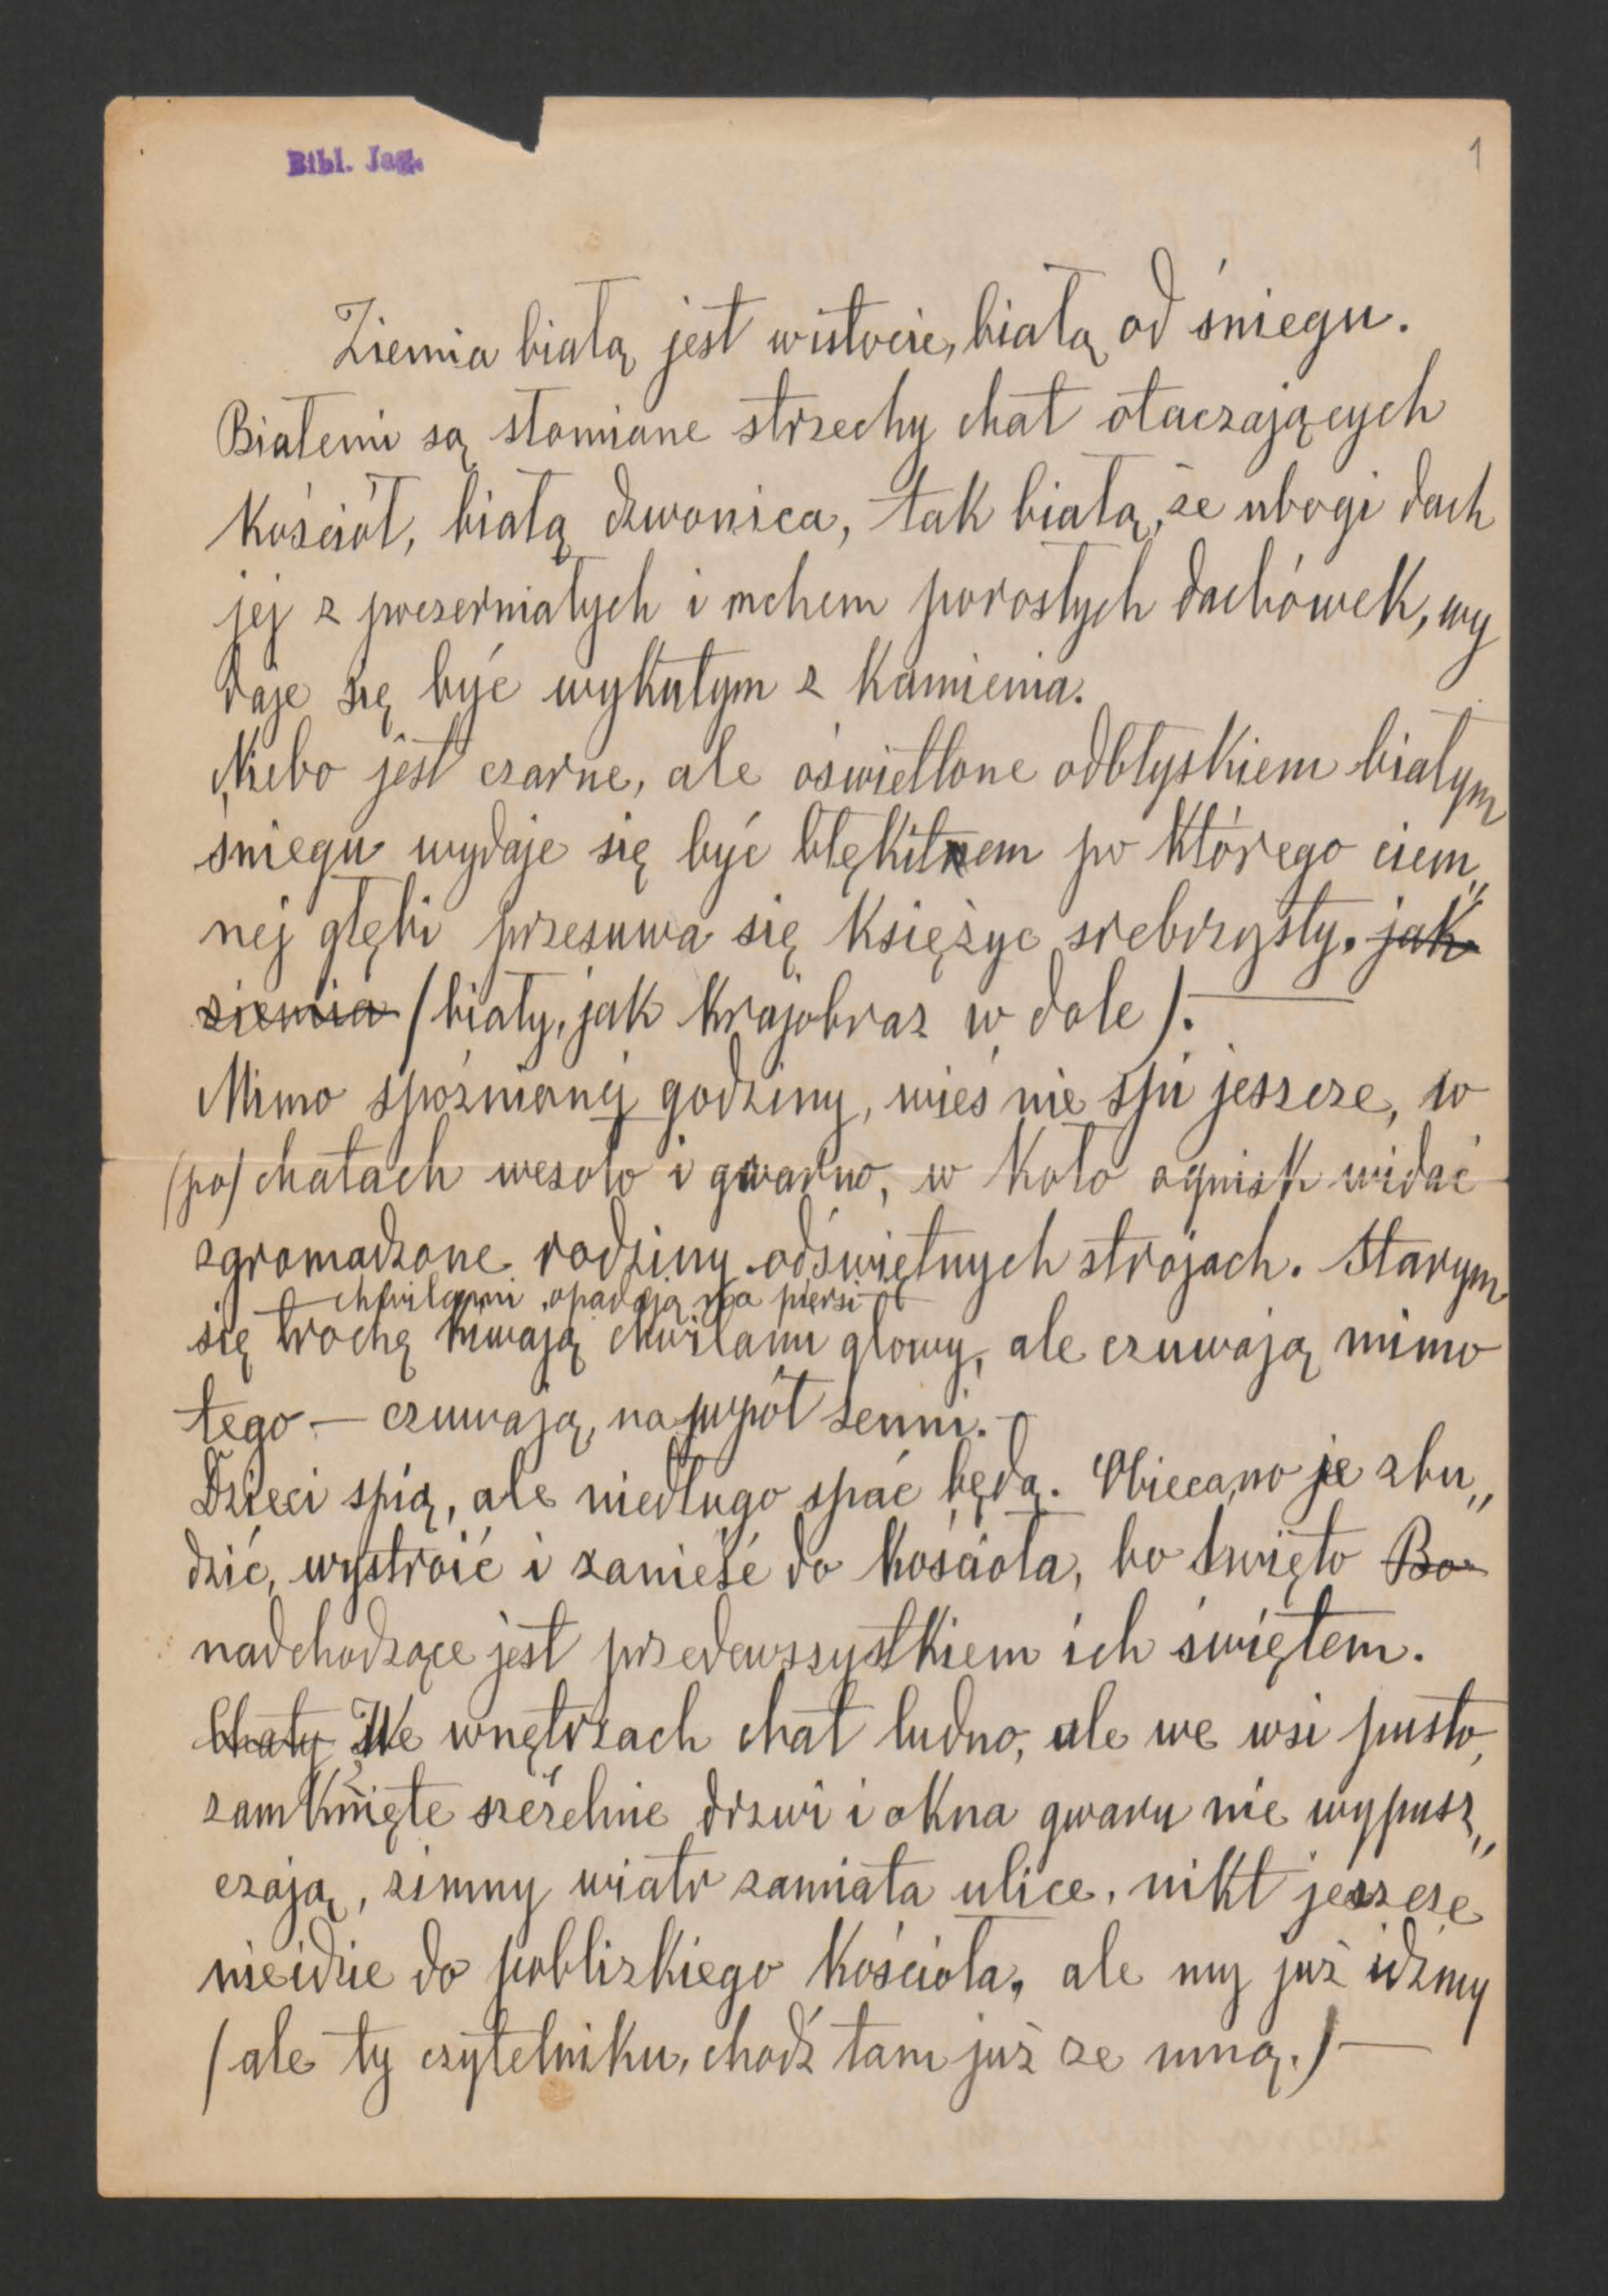 Bibl. Jag.
1
Ziemia białą jest wistocie, białą od śniegu.
Białemi są słomiane strzechy chat otaczających
kościół, białą dzwonica, tak białą, że ubogi dach
jej z poczerniałych i mchem porosłych dachówek, wy
daje się być wykutym z kamienia.
Niebo jest czarne, ale oświetlone odbłyskiem białym
śniegu wydaje się być błękitnem po którego ciem„
nej głębi przesuwa się księżyc srebrzysty. jak
ziemia (biały, jak krajobraz w dole).—
Mimo spóźnionej godziny, wieś nie śpi jeszcze, w
(po) chatach wesoło i gwarno, w koło ognisk widać
zgromadzone rodziny odświętnych strojach. Starym
chwilami opadają na piersi
się trochę kiwają chwilami głowy, ale czuwają mimo
tego — czuwają, na wpół senni.—
Dzieci śpią, ale niedługo spać będą. Obiecano je zbu„
dzić, wystroić i zanieść do kościoła, bo święto Bo
nadchodzące jest przedewszystkiem ich świętem.
Chaty We wnętrzach chat ludno, ale we wsi pusto,
zamknięte szczelnie drzwi i okna gwaru nie wypusz„
czają, zimny wiatr zamiata ulice, nikt jeszcze
nieidzie do poblizkiego kościoła, ale my już idźmy
(ale ty czytelniku, chodź tam już ze mną.)—